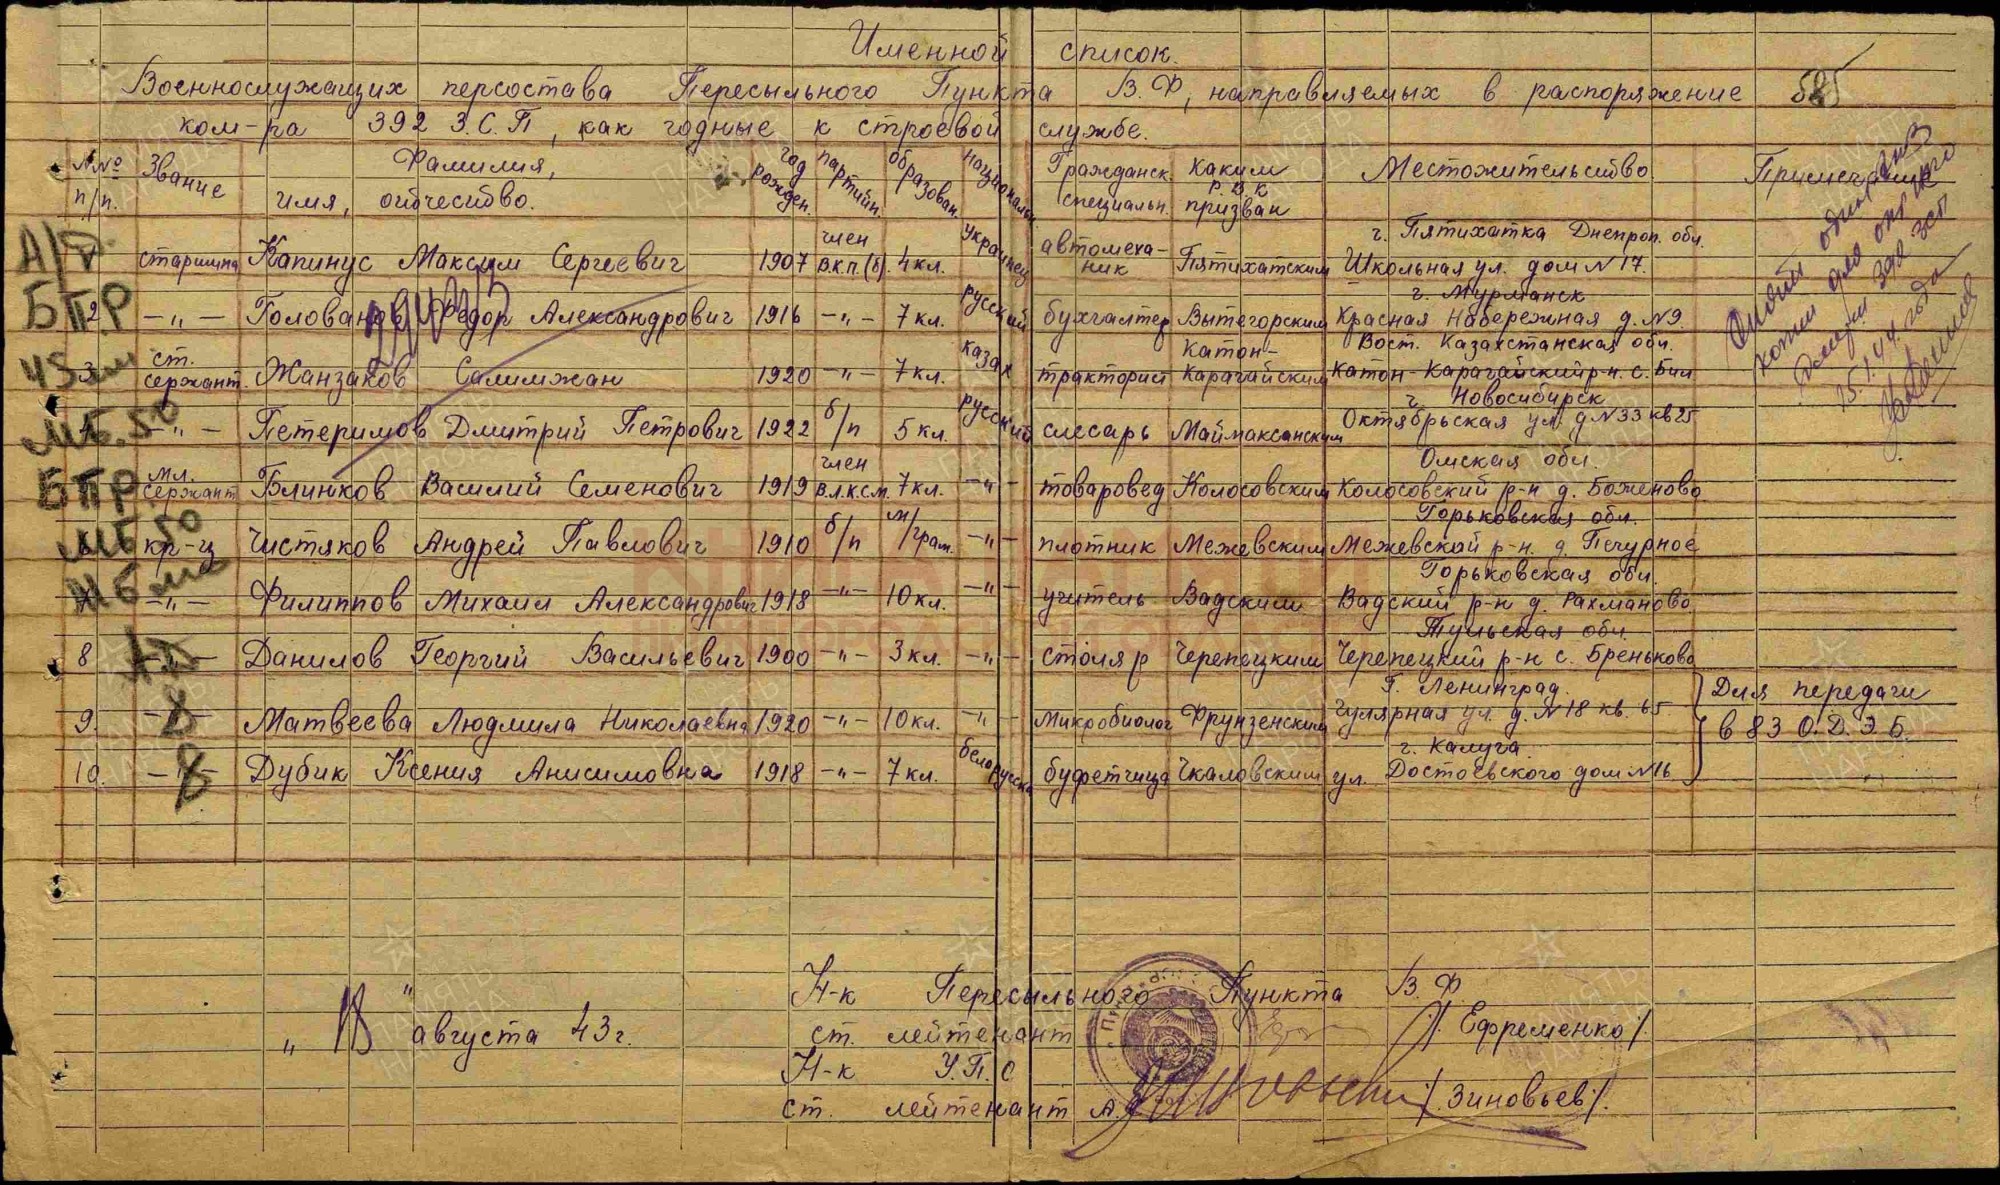 Именной список.
Военнослужащих персостава Пересыльного Пункта В.Ф, направляемых в распоряжение 525
ком-ра 392 З.С.П, как годные к строевой службе.
№№ п/п. Звание Фамилия, имя, отчество. год рожден. партийн. образован. национальн Гражданск. специальн. каким Р.В.К призван Местожительство Примечание
старшина Капинус Максим Сергеевич 1907 член В.К.П.(б). 4 кл. украинец автомеханик Пятихатским г. Пятихатка Днепроп. обл. Школьная ул. дом N 17.
2 -"- Голованов Федор Александрович 1916 -"- 7 кл. русский бухгалтер Вытегорским г. Мурманск Красная Набережная д. N9.
3 ст. сержант. Жанзаков Салимжан 1920 -"- 7 кл. казах тракторист Катон-Карагайским Вост. Казахстанская обл. Катон-Карагайский р-н. с. Бил
-"- Петеримов Дмитрий Петрович 1922 б/п 5 кл. русский слесарь Маймаксанским г. Новосибирск Октябрьская ул. д N 33 кв 25
мл. сержант Блинков Василий Семенович 1919 член В.Л.К.С.М. 7 кл. -"- товаровед Колосовским Омская обл. Колосовский р-н д. Боженово
кр-ц Чистяков Андрей Павлович 1910 б/п м/грам. -"- плотник Межевским Горьковская обл. Межевской р-н. д. Печурное
-"- Филиппов Михаил Александрович 1918 -"- 10 кл. -"- учитель Вадским Горьковская обл. Вадский р-н д. Рахманово
8 -"- Данилов Георгий Васильевич 1900 -"- 3 кл. -"- столяр Черепецким Тульская обл. Черепецкий р-н с. Бреньково
9. -"- Матвеева Людмила Николаевна 1920 -"- 10 кл. -"- микробиолог Фрунзенским г. Ленинград. Гулярная ул. д. N 18 кв. 65 Для передачи
10. -"- Дубик Ксения Анисимовна 1918 -"- 7 кл. белорусска буфетчица Чкаловским г. Калуга ул. Достоевского дом N 16 в 83 О.Д.Э.Б.
А/Т
БПР
45 мм
МБ.50
БПР
МБ 50
15.1.44 года
Н-к Пересыльного Пункта В.Ф
"18" августа 43 г. ст. лейтенант /Ефременко/.
Н-к У.П.С
ст. лейтенант А.С /Зиновьев/.
ПАМЯТЬ НАРОДА
КНИГА ПАМЯТИ